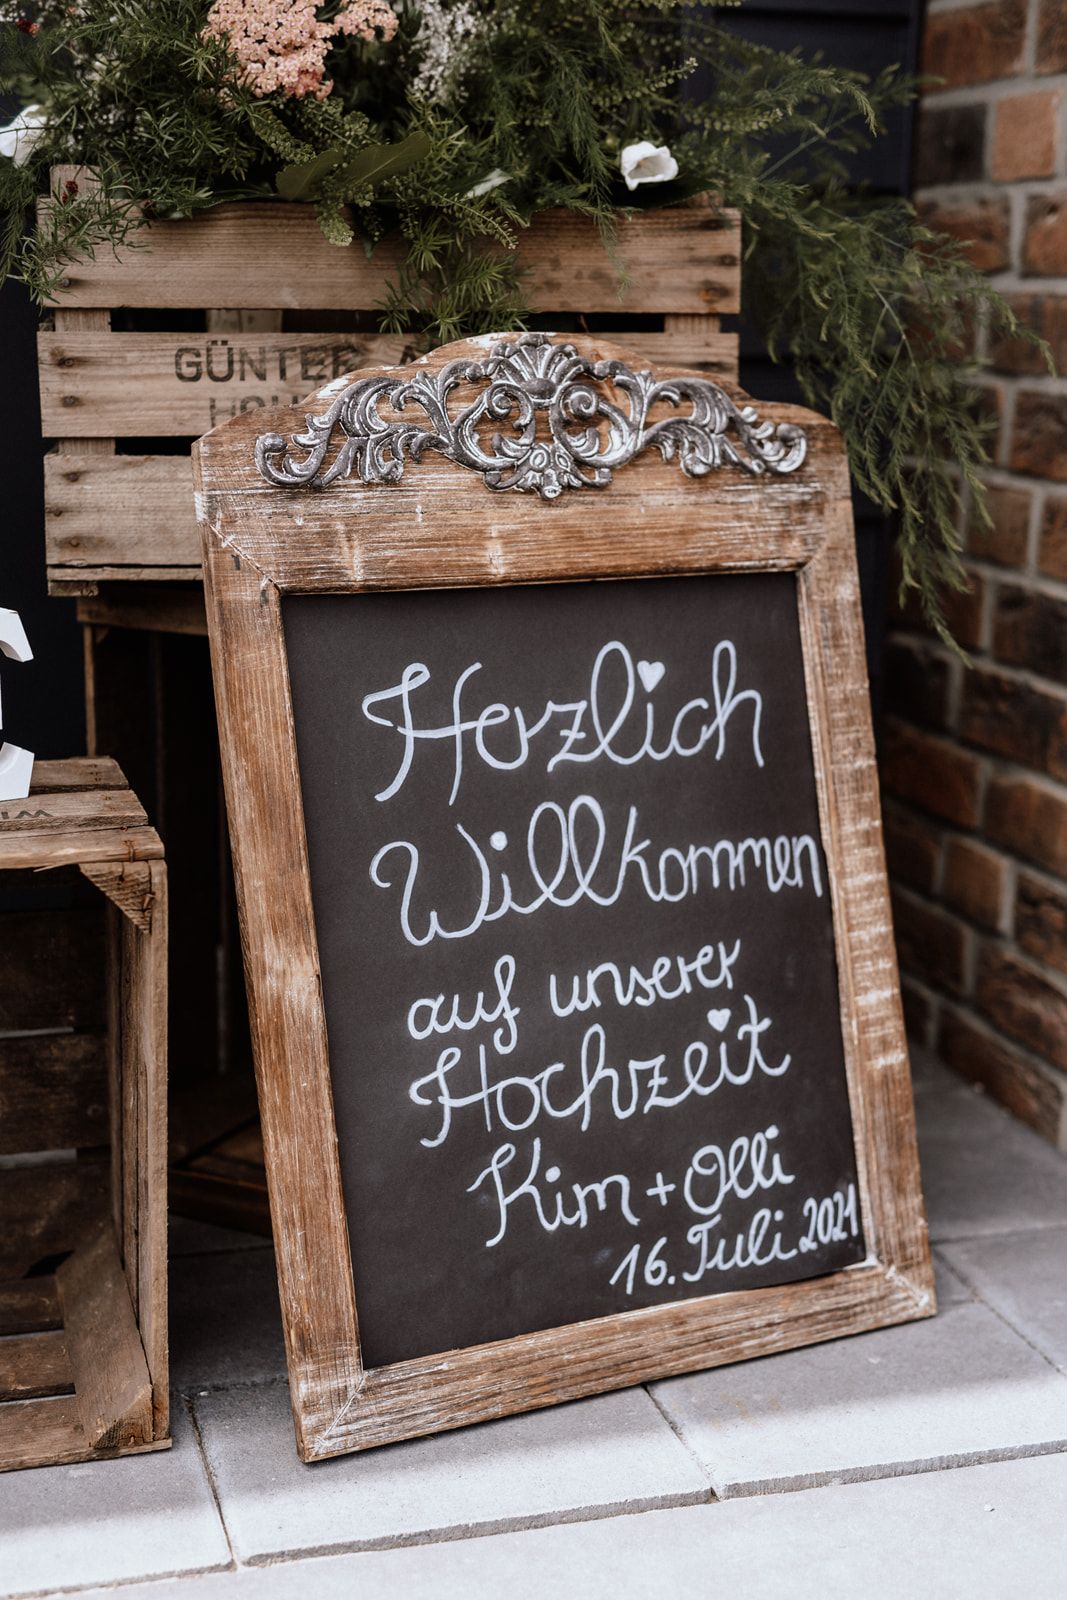 GÜNTER
Herzlich
Willkommen
auf unserer
Hochzeit
Kim + Olli
16. Juli 2021